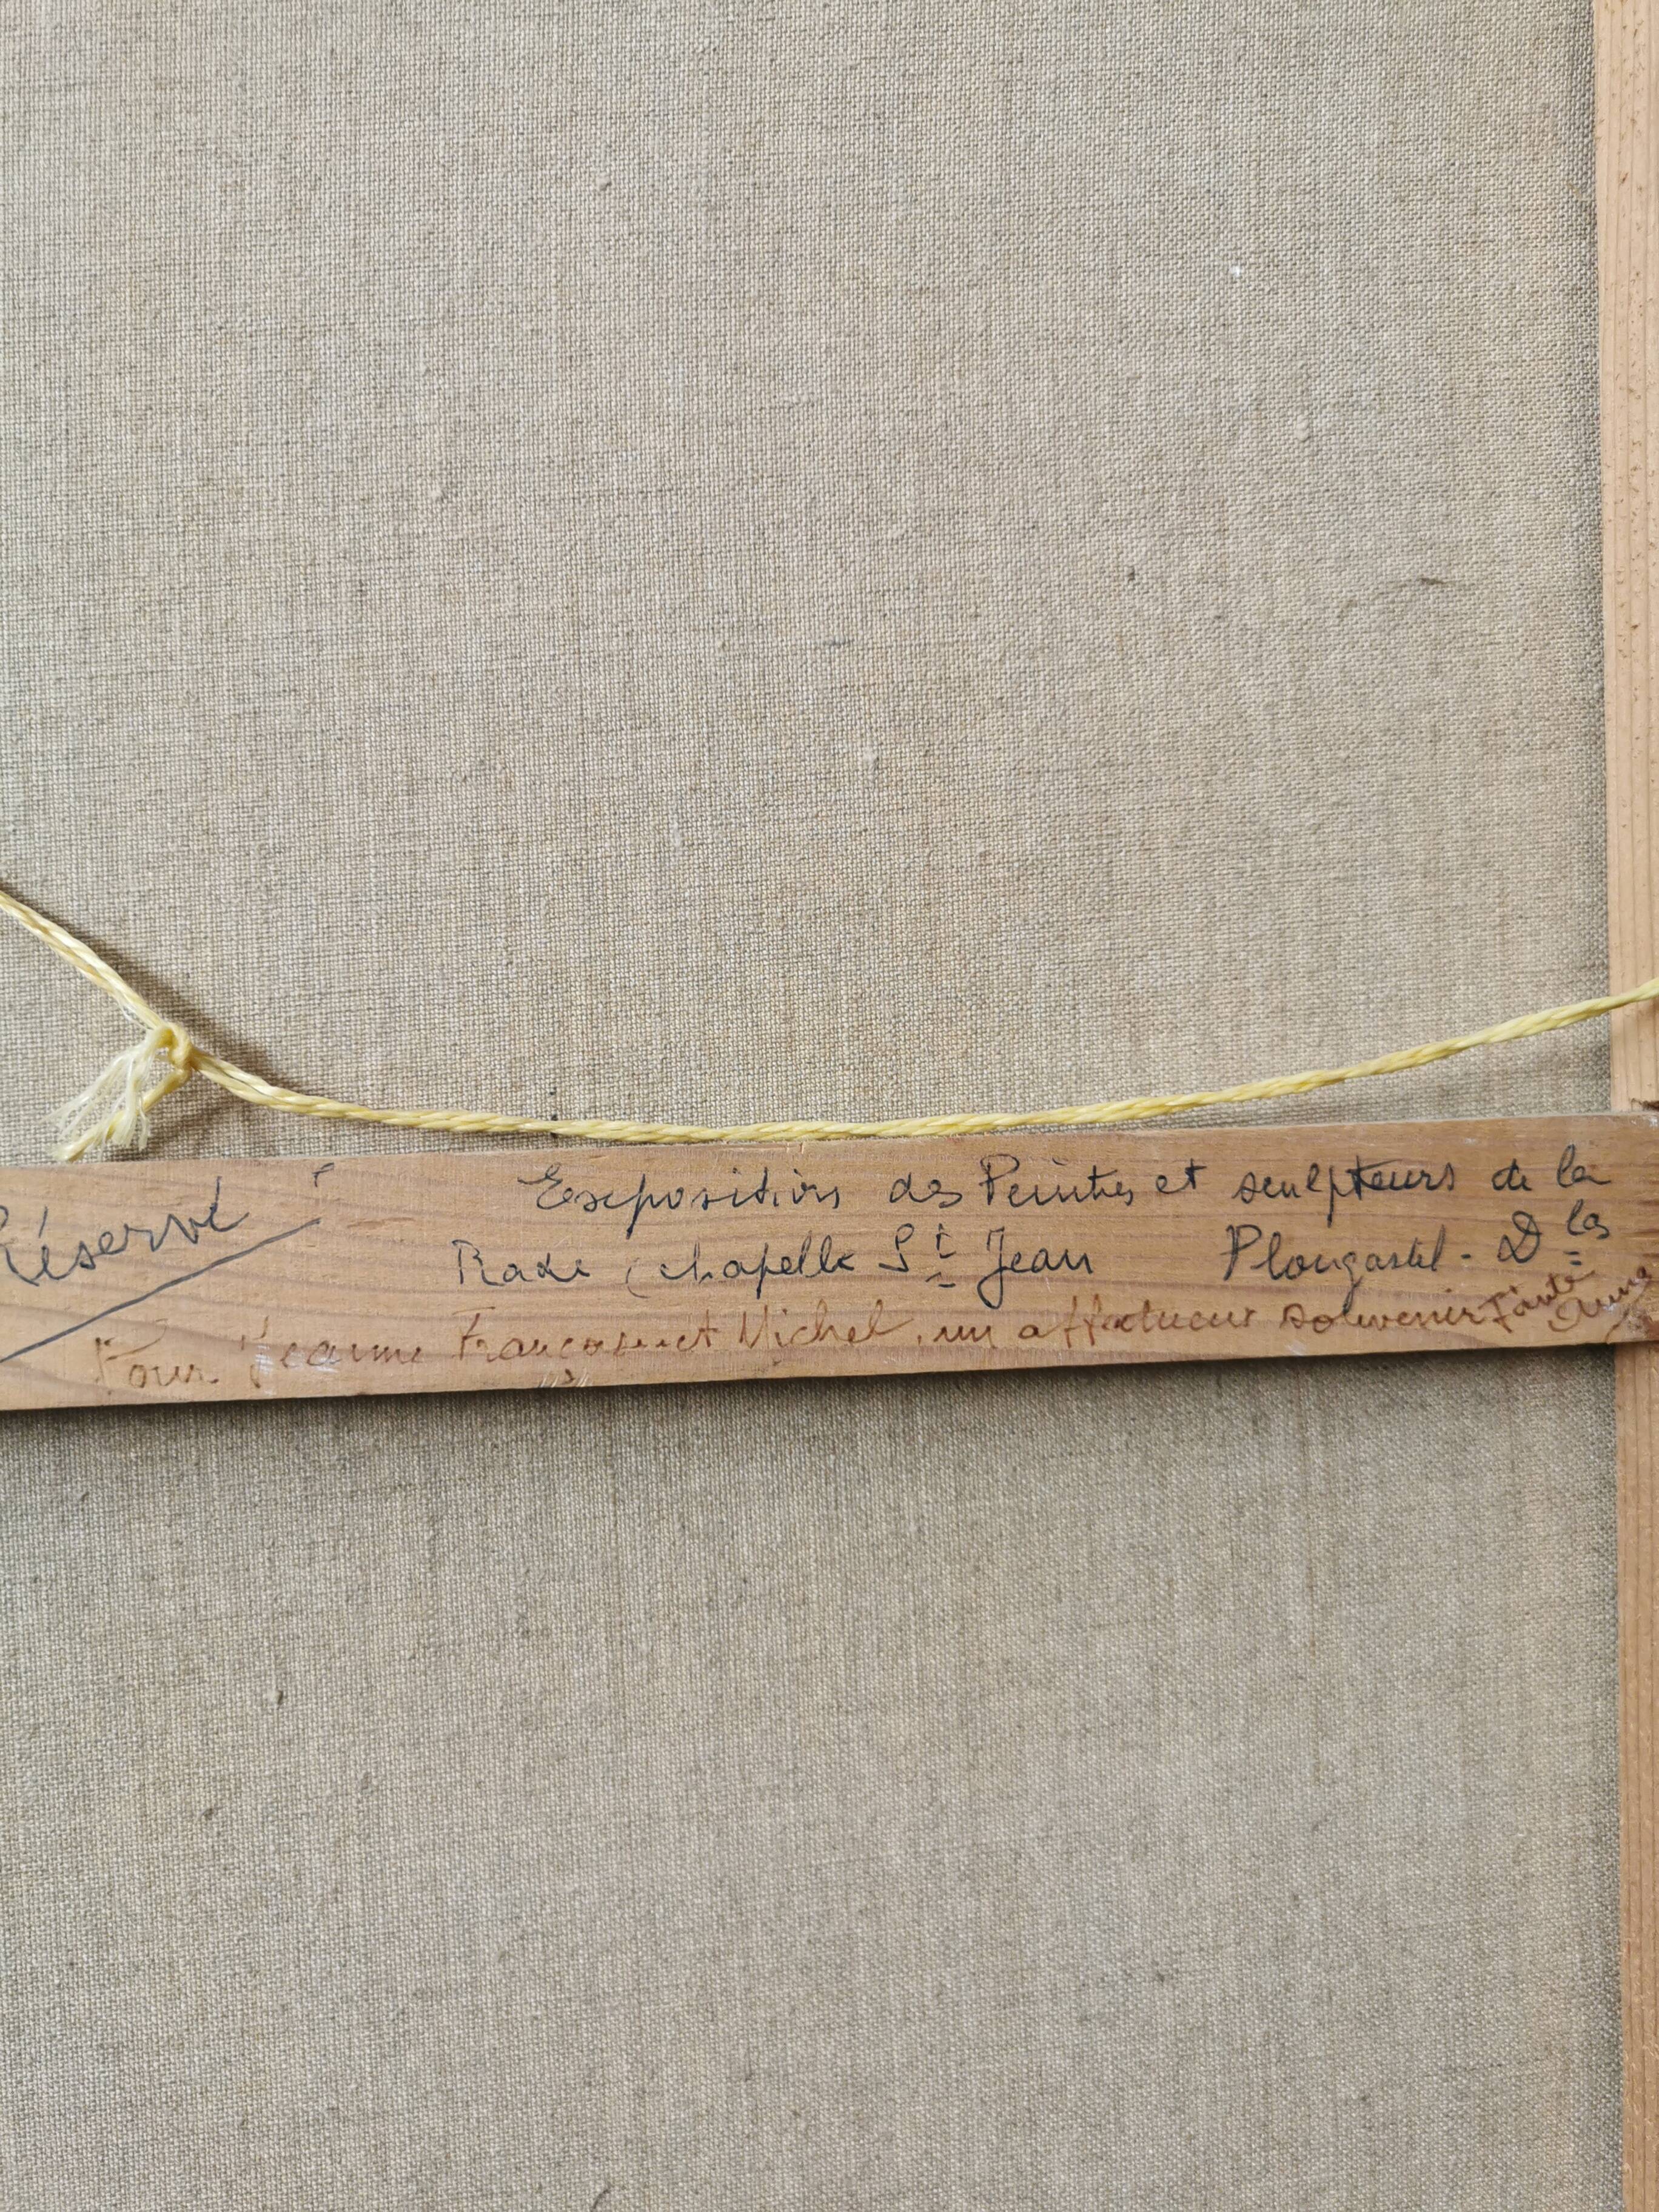 Réservé
Exposition des Peintres et sculpteurs de la
Rade, chapelle St Jean Plougastel - Dlas
Pour Jeanne Françoise et Michel, un affectueux souvenir Tante
Anna